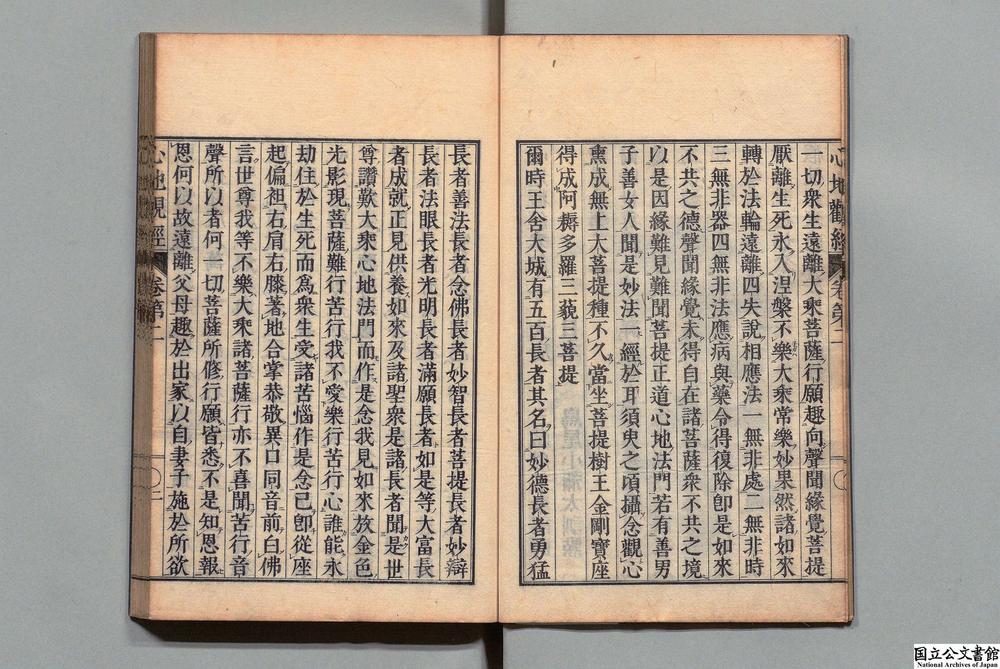 一切衆生遠離大乘菩薩行願趣向聲聞緣覺菩提
厭離生死永入涅槃不樂大乘常樂妙果然諸如來
轉於法輪遠離四失說相應法一無非處二無非時
三無非器四無非法應病與藥令得復除卽是如來
不共之德聲聞緣覺未得自在諸菩薩衆不共之境
以是因緣難見難聞菩提正道心地法門若有善男
子善女人聞是妙法一經於耳須臾之頃攝念觀心
熏成無上大菩提種不久當坐菩提樹王金剛寶座
得成阿耨多羅三藐三菩提
爾時王舍大城有五百長者其名曰妙德長者勇猛
長者善法長者念佛長者妙智長者菩提長者妙辯
長者法眼長者光明長者滿願長者如是等大富長
者成就正見供養如來及諸聖衆是諸長者聞是世
尊讚歎大乘心地法門而作是念我見如來放金色
光影現菩薩難行苦行我不愛樂行苦行心誰能永
劫住於生死而爲衆生受諸苦惱作是念已卽從座
起偏袒右肩右膝著地合掌恭敬異口同音前白佛
言世尊我等不樂大乘諸菩薩行亦不喜聞苦行音
聲所以者何一切菩薩所修行願皆悉不是知恩報
恩何以故遠離父母趣於出家以自妻子施於所欲
心地觀經 卷第二
国立公文書館
National Archives of Japan